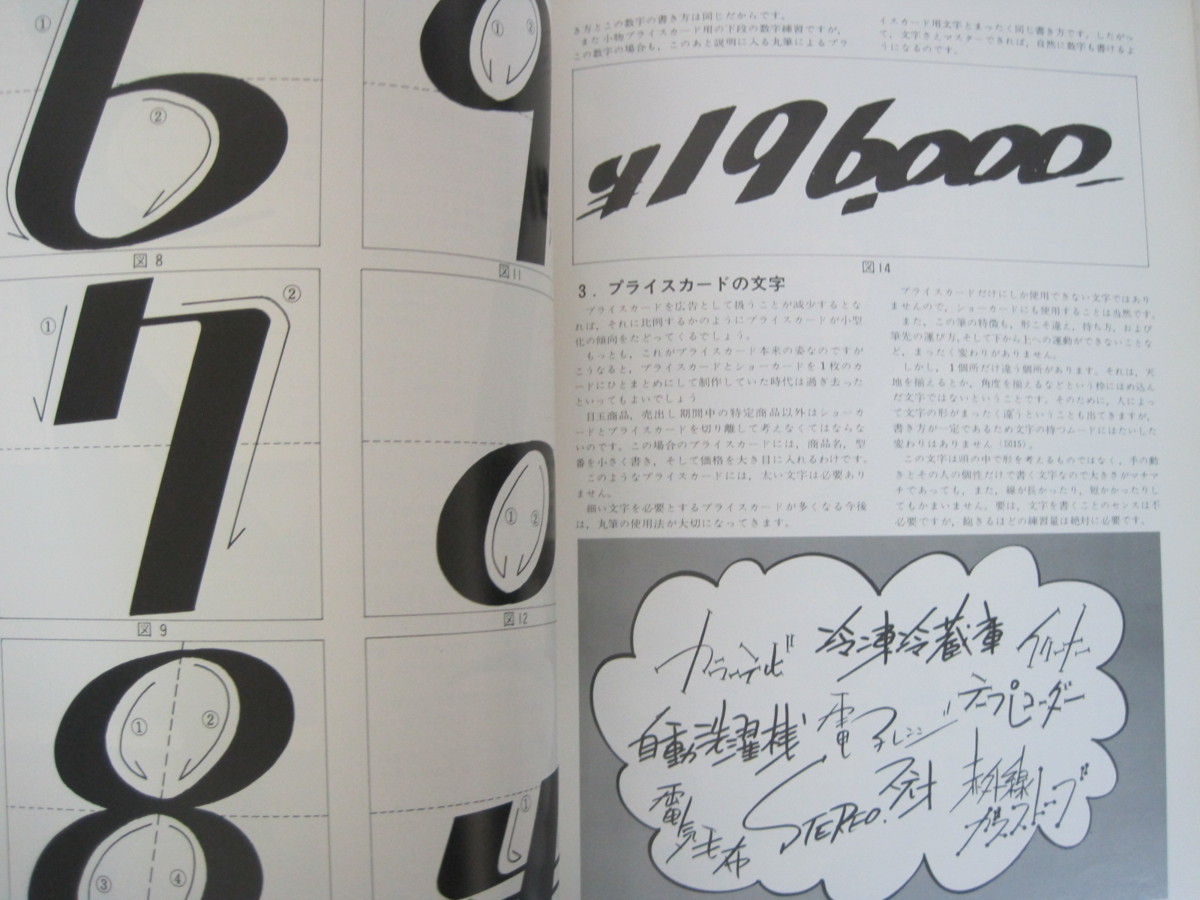 ①
②
図8
①
②
図9
①
②
③
④
①
②
図11
①
②
図12
①
き方とこの数字の書き方は同じだからです。
また小物プライスカード用の下段の数字練習ですが、
この数字の場合も、このあと説明に入る丸筆によるプラ
イスカード用文字とまったく同じ書き方です。したがっ
て、文字さえマスターできれば、自然に数字も書けるよ
うになるのです。
¥196,000
図14
3. プライスカードの文字
プライスカードを広告として扱うことが減少するとな
れば、それに比例するかのようにプライスカードが小型
化の傾向をたどってくるでしょう。
もっとも、これがプライスカード本来の姿なのですが
こうなると、プライスカードとショーカードを1枚のカ
ードにひとまとめにして制作していた時代は過ぎ去った
といってもよいでしょう
目玉商品、売出し期間中の特定商品以外はショーカ
ードとプライスカードを切り離して考えなくてはならな
いのです。この場合のプライスカードには、商品名、型
番を小さく書き、そして価格を大き目に入れるわけです。
このようなプライスカードには、太い文字は必要あり
ません。
細い文字を必要とするプライスカードが多くなる今後
は、丸筆の使用法が大切になってきます。
プライスカードだけにしか使用できない文字ではあり
ませんので、ショーカードにも使用することは当然です。
また、この筆の特徴も、形こそ違え、持ち方、および
筆先の運び方、そして下から上への運動ができないことな
ど、まったく変わりがありません。
しかし、1個所だけ違う個所があります。それは、天
地を揃えるとか、角度を揃えるなどという枠にはめ込ん
だ文字ではないということです。そのために、人によっ
て文字の形がまったく違うということも出てきますが、
書き方が一定であるため文字の持つムードにはたいした
変わりはありません（図15）。
この文字は頭の中で形を考えるものではなく、手の動
きとその人の個性だけで書く文字なので大きさがマチマ
チであっても、また、線が長かったり、短かかったりし
てもかまいません。要は、文字を書くことのセンスは不
必要ですが、飽きるほどの練習量は絶対に必要です。
カラーテレビ
冷凍冷蔵庫
クリーナー
自動洗濯機
電子レンジ
テープレコーダー
電気毛布
STEREO.
赤外線
ガスストーブ